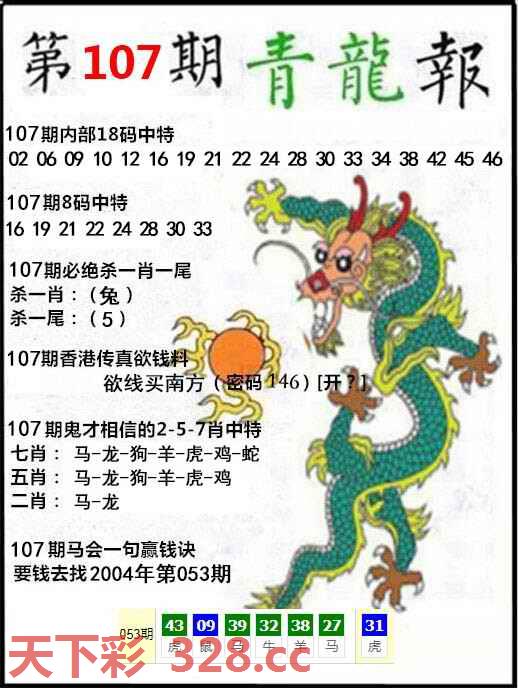 第107期青龍報
107期内部18码中特
02 06 09 10 12 16 19 21 22 24 28 30 33 34 38 42 45 46
107期8码中特
16 19 21 22 24 28 30 33
107期必绝杀一肖一尾
杀一肖：（兔）
杀一尾：（5）
107期香港传真欲钱料
欲线买南方（密码146）[开？]
107期鬼才相信的2-5-7肖中特
七肖： 马-龙-狗-羊-虎-鸡-蛇
五肖： 马-龙-狗-羊-虎-鸡
二肖： 马-龙
107期马会一句赢钱诀
要钱去找2004年第053期
053期 43 09 39 32 38 27 31
虎 鼠 马 牛 羊 马 虎
天下彩 328.cc